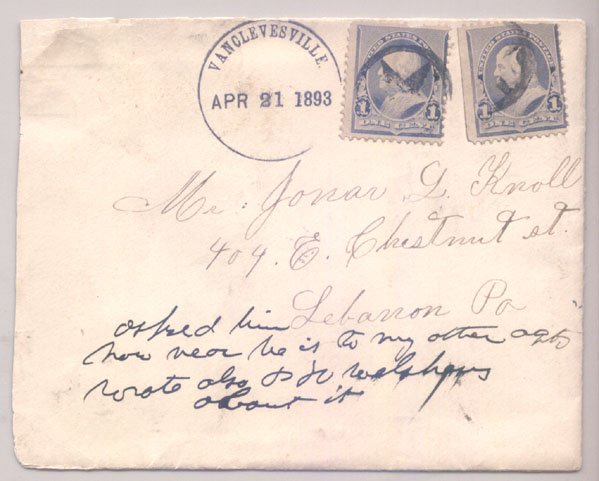 VANCLEVESVILLE.
APR 21 1893
UNITED STATES POSTAGE
1 1
ONE CENT
UNITED STATES POSTAGE
1 1
ONE CENT
Mr. Jonas L. Knoll
404. E. Chestnut st.
Lebanon Pa
asked him
how near he is to my other agts
wrote also
about it